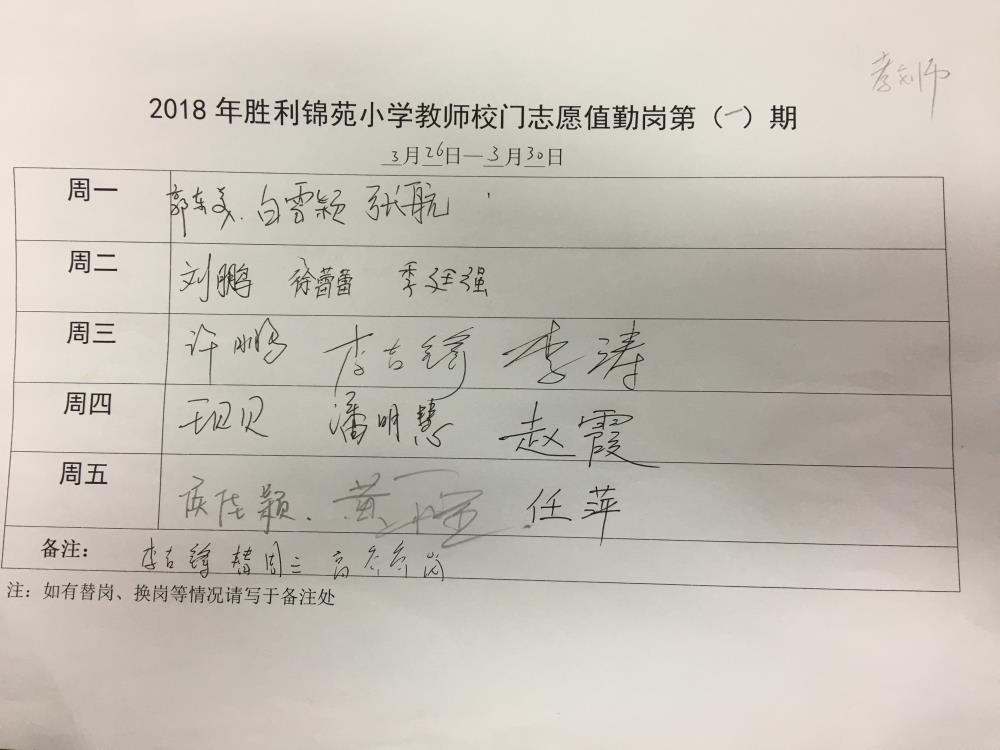 2018年胜利锦苑小学教师校门志愿值勤岗第（一）期
3月26日—3月30日
周一 郭东美. 白雪颖 张航
周二 刘鹏 徐蕾蕾 季廷强
周三 许鹏 李吉锋 李涛
周四 王贝贝 潘明慧 赵霞
周五 侯佳颖. 黄 任萍
备注： 李吉锋替周三 岗
注：如有替岗、换岗等情况请写于备注处